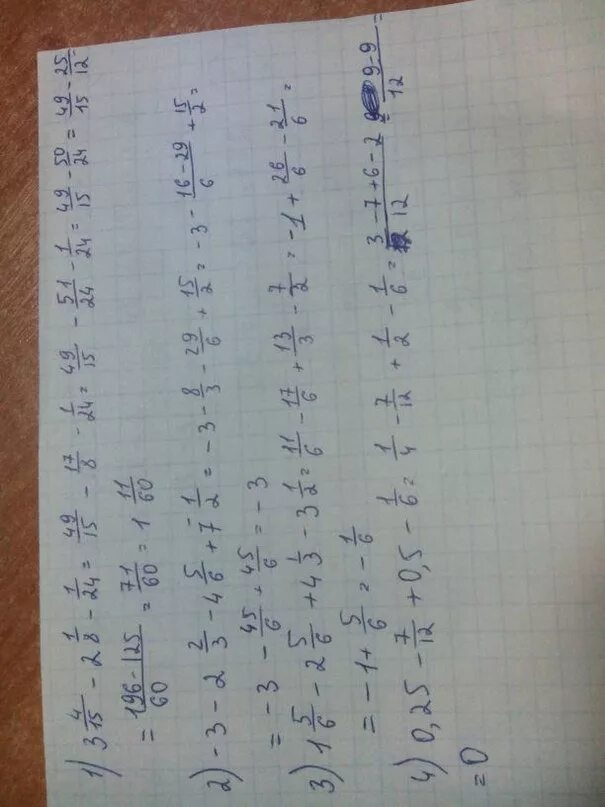 1) 3 4/15 - 2 1/8 - 1/24 = 49/15 - 17/8 - 1/24 = 49/15 - 51/24 - 1/24 = 49/15 - 50/24 = 49/15 - 25/12 =
= 196-125/60 = 71/60 = 1 11/60
2) -3 - 2 2/3 - 4 5/6 + 7 1/2 = -3 - 8/3 - 29/6 + 15/2 = -3 - 16-29/6 + 15/2 =
= -3 - 45/6 + 45/6 = -3
3) 1 5/6 - 2 5/6 + 4 1/3 - 3 1/2 = 11/6 - 17/6 + 13/3 - 7/2 = -1 + 26/6 - 21/6 =
= -1 + 5/6 = -1/6
4) 0,25 - 7/12 + 0,5 - 1/6 = 1/4 - 7/12 + 1/2 - 1/6 = 3-7+6-2/12 = 9-9/12 =
= 0